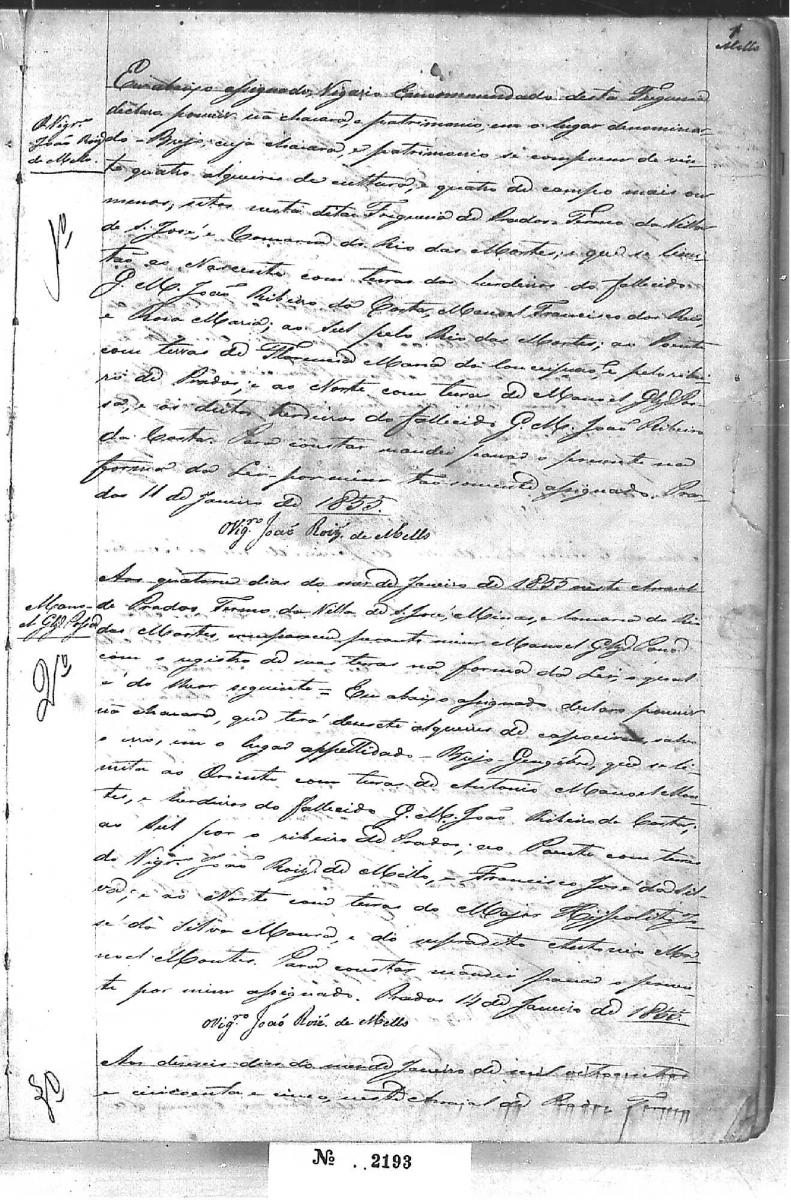 1
Mello
O Vigr.º
João Roiz
de Mello.
1º
Eu abaixo assignado, Vigario Encommendado desta Freguesia
declaro possuir uã chacara, e patrimonio, em o lugar denomina-
do - Brejo, cuja chacara, e patrimonio se compoem de vin-
te quatro alqueires de cultura, e quatro de campo mais ou
menos, sitos nesta dita Freguesia de Prados Termo da Villa
de S. José, e Comarca do Rio das Mortes, e que se limi-
tão ao Nascente com terras dos herdeiros do fallecido
G. M. João Ribeiro da Costa, Manoel Francisco dos Reis,
e Rosa Maria; ao Sul pelo Rio das Mortes; ao Poente
com terras de Florencia Maria da Conceipção, e pelo ribei-
ro de Prados; e ao Norte com terras de Manoel Glz
e os ditos herdeiros do fallecido G. M. João Ribeiro
da Costa. Para constar mandei passar o presente na
forma da Lei, por mim tão somente assignado. Pra-
dos 11 de Janeiro de 1855.
O Vigr.º João Roiz de Mello
Mano-
el Glz
2º
Aos quatorze dias do mez de Janeiro de 1855 neste Arraial
de Prados, Termo da Villa de S. José, Minas, e Comarca do Rio
das Mortes, compareceu perante mim Manoel Glz
com o registro de suas terras na forma da Lei, o qual
é do theor seguinte = Eu abaixo assignado declaro possuir
uã chacara, que terá dezesete alqueires de capoeiras,
em o lugar appellidado - Brejo - que se li-
mita ao Oriente com terras de Antonio Manoel Mon-
tes, e herdeiros do fallecido G. M. João Ribeiro da Costa;
ao Sul por o ribeiro de Prados; ao Poente com terras
do Vigr.º João Roiz de Mello, e Francisco José da Sil-
va; e ao Norte com terras do Major Hyppolito Jo-
sé da Silva Moura, e do supradito Antonio Ma-
noel Montes. Para constar mandei passar o presen-
te por mim assignado. Prados 14 de Janeiro de 1855.
O Vigr.º João Roiz de Mello
3º
Aos dezeseis dias do mez de Janeiro de mil oitocentos
e cincoenta e cinco, neste Arraial de Prados Termo
Nº 2193